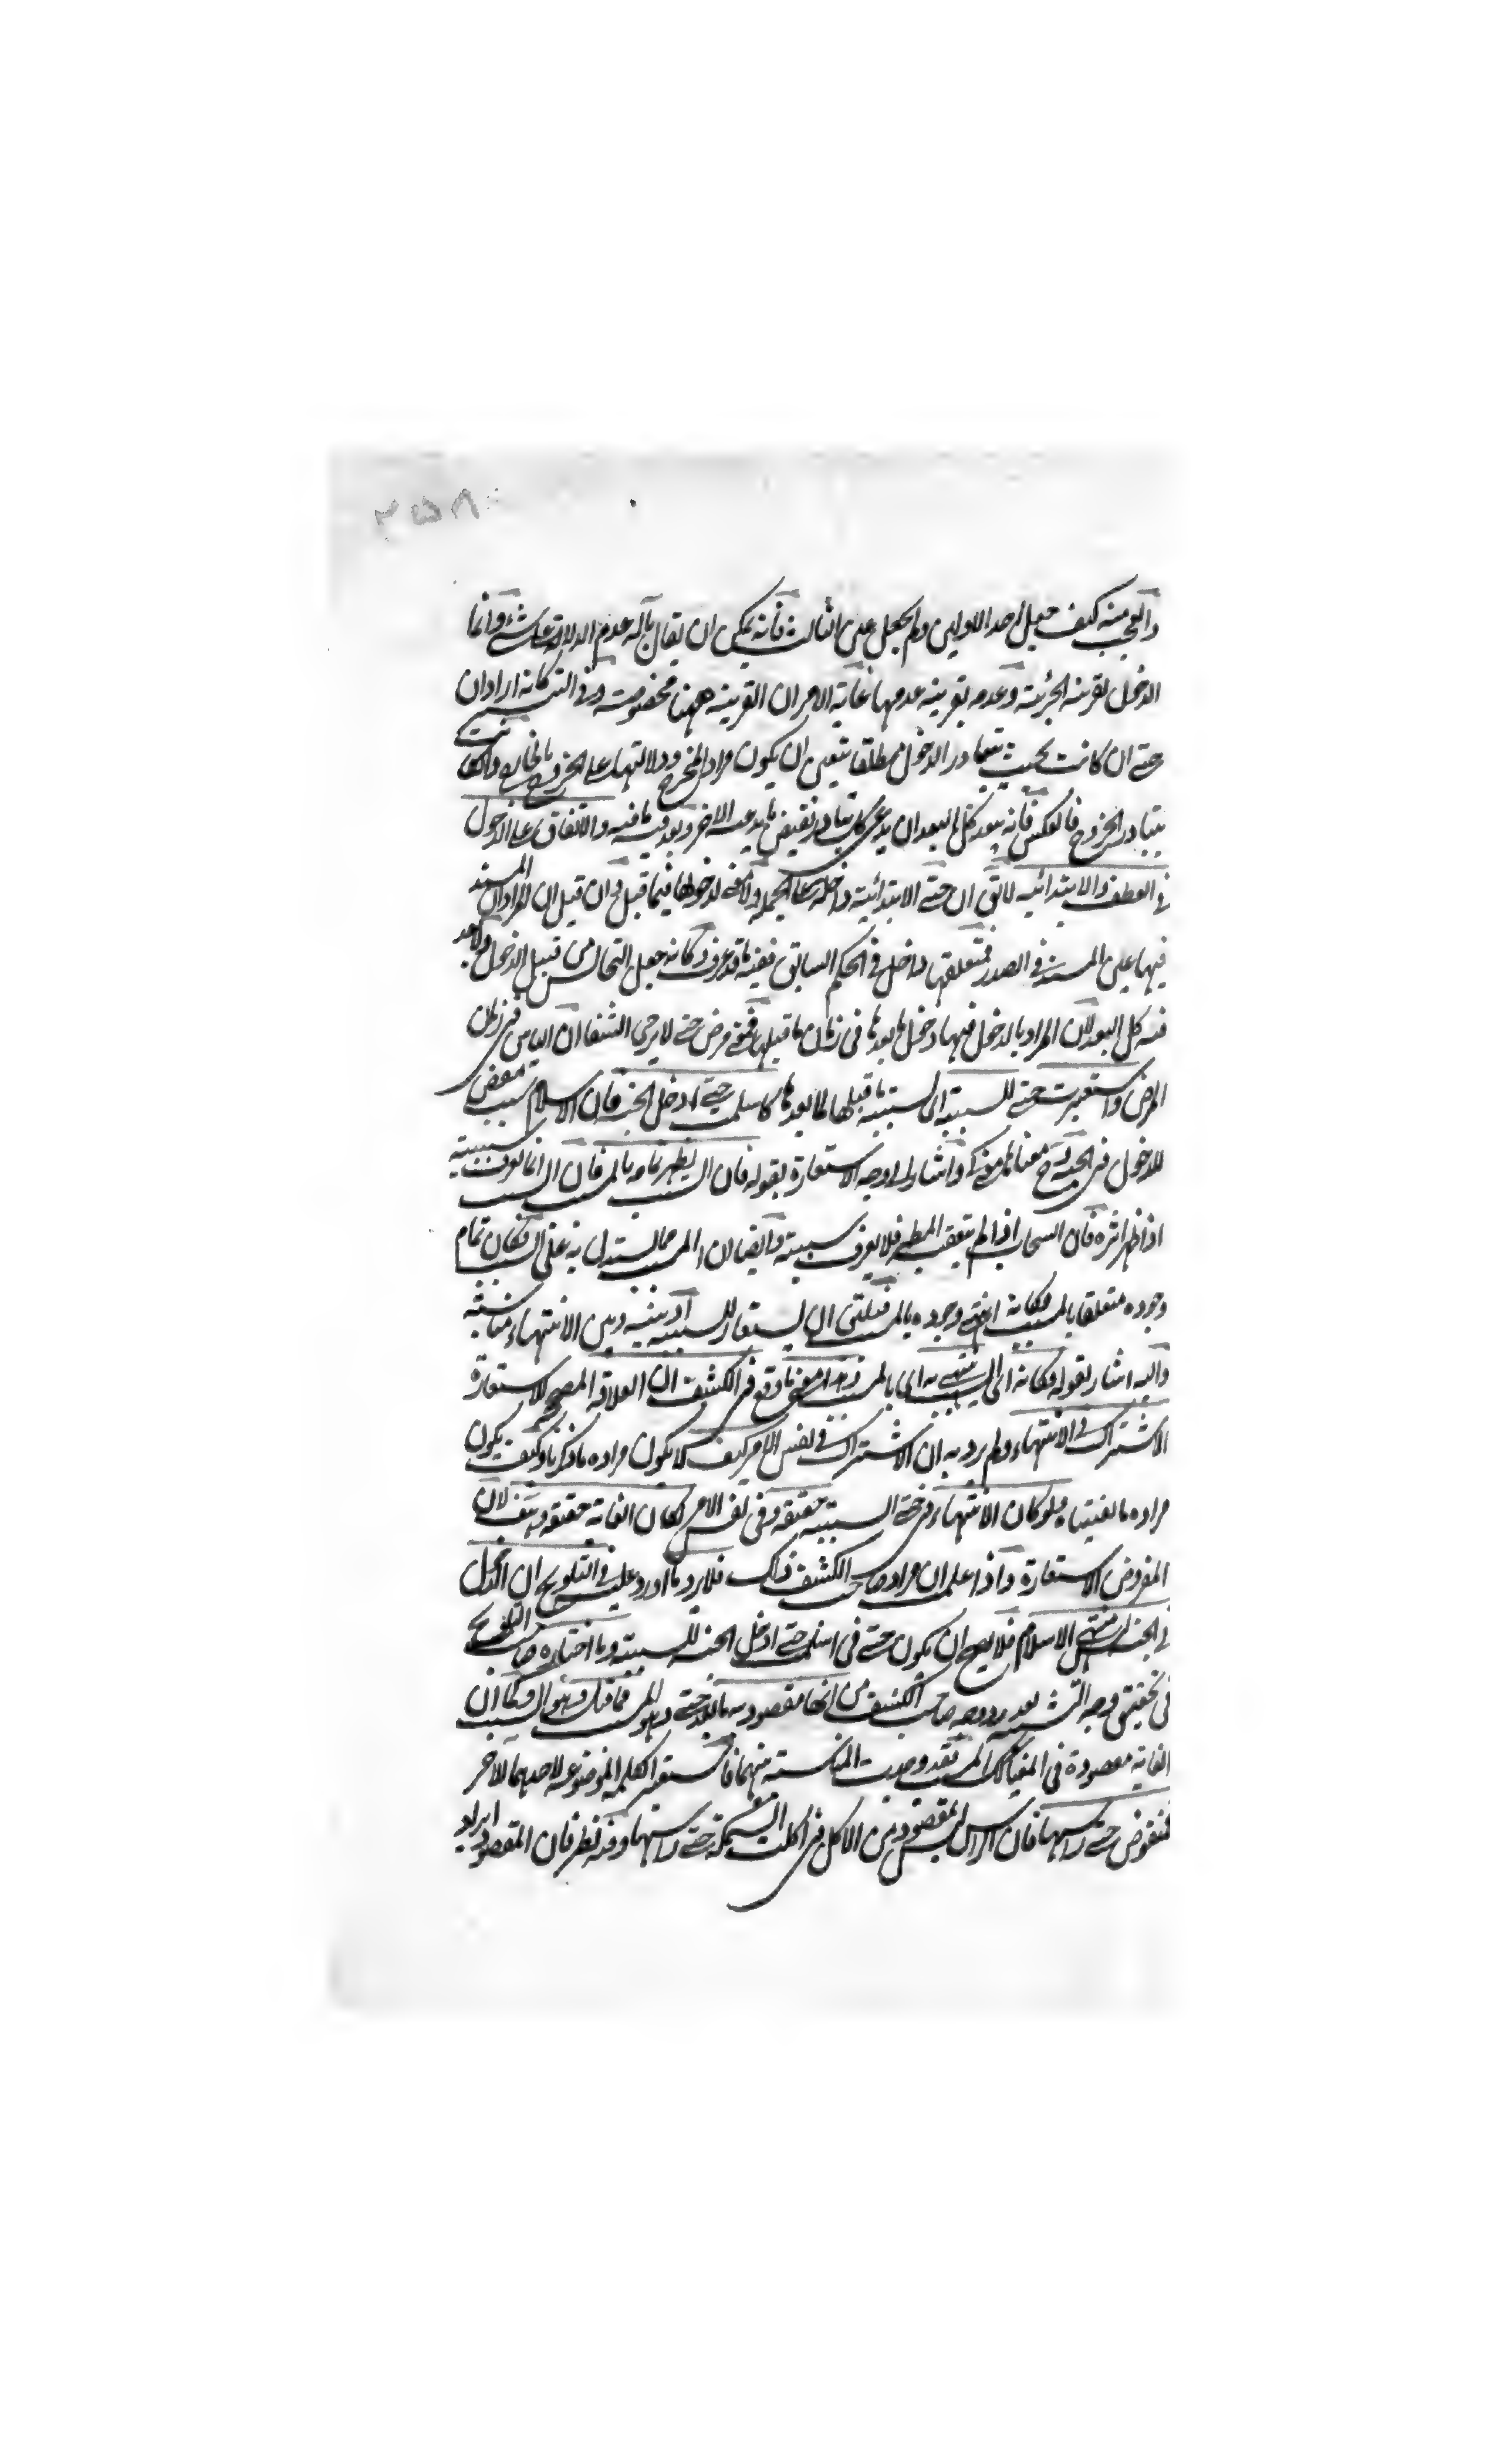 ٢٥٨
والعجب منه كيف جعل احد الاولين ولم يجعل عين الثالث فانه يمكن ان يقال بانه عدم الدلالة على شئ وانما
الدخول بقرينة الجزئية وعدمه بقرينة عدمها غاية الامر ان القرينة ههنا مخصوصة وفي التب كانه اراد ان
حتى ان كانت بحيث يتبادر الدخول مطلقا يتعين ان يكون مراد المخرج ودلالتها على الخروج بالخارج وان كانت
يتبادر الخروج فالعكس فانه يبعد كل البعد ان يدعى كل تبادر نقيض ما يدعيه الاخر وبعد فيه ما فيه والاتفاق على الدخول
في العطف والابتدائية لان حتى الابتدائية داخلة على الجملة ولا معنى لدخولها فيما قبل وان قيل ان المراد ان المسند
فيها عين المسند في الصدر فمتعلقها داخل في الحكم السابق ففيه ما قد عرفت كانه جعل التجانس من قبيل الدخول ولا بعد
فيه كل البعد لان المراد بالدخول فيها دخول ما بعدها في زمان ما قبلها فمعنى مرض حتى لا يرجى الشفا ان الياس في زمان
المرض واستعيرت حتى للسببية اي لسببية ما قبلها لما بعدها كاسلمت حتى ادخل الجنة فان الاسلام سبب مفض
للدخول في الجنة معناها كي واشار الى وجه الاستعارة بقوله فان السبب يظهر تمامه بالمسبب فان السبب انما يعرف سببيته
اذا ظهر اثره فان السحاب اذا لم يتعقب المطر فلا يعرف سببيته وايضا ان المسبب مما يستدل به على السبب فكان تمام
وجوده متعلقا بالمسبب فكانه انتهى وجوده بالمسبب فيليق ان يستعار للسببية اذ بينه وبين الانتهاء مناسبة
واليه اشار بقوله فكانه اي السبب ينتهي به اي بالمسبب وهذا معنى ما وقع في الكشف ان العلاقة المصححة للاستعارة
الاشتراك في الانتهاء ولم يرد به ان الاشتراك في نفس الامر كيف لا يكون مراده ما ذكرنا وكيف يكون
مراده ما نفيناه ولو كان الانتهاء في حتى السببية حقيقة وفي نفس الامر لكان الغاية حقيقة لان
المفروض الاستعارة واذا علمت ان مراد صاحب الكشف ذلك فلا يرد ما اورد عليه في التلويح ان الدخول
في الجنة ليس منتهى الاسلام فلا يصح ان يكون حتى في اسلمت حتى ادخل الجنة للسببية وما اختاره صاحب التلويح
في تحقيق وجه التشبيه بعد رد وجه صاحب الكشف من انها مقصودية ما بعد حتى وهو المسبب مما قبله وهو السبب فكما ان
الغاية مقصودة في المغيا كذلك المسبب فقد وجدت المناسبة بينهما فاستعير الكلمة الموضوعة لاحدهما للاخر
منقوض بحتى راسها فان الراس ليس المقصود من الاكل في اكلت السمكة حتى راسها وفيه نظر فان المقصود ايراد